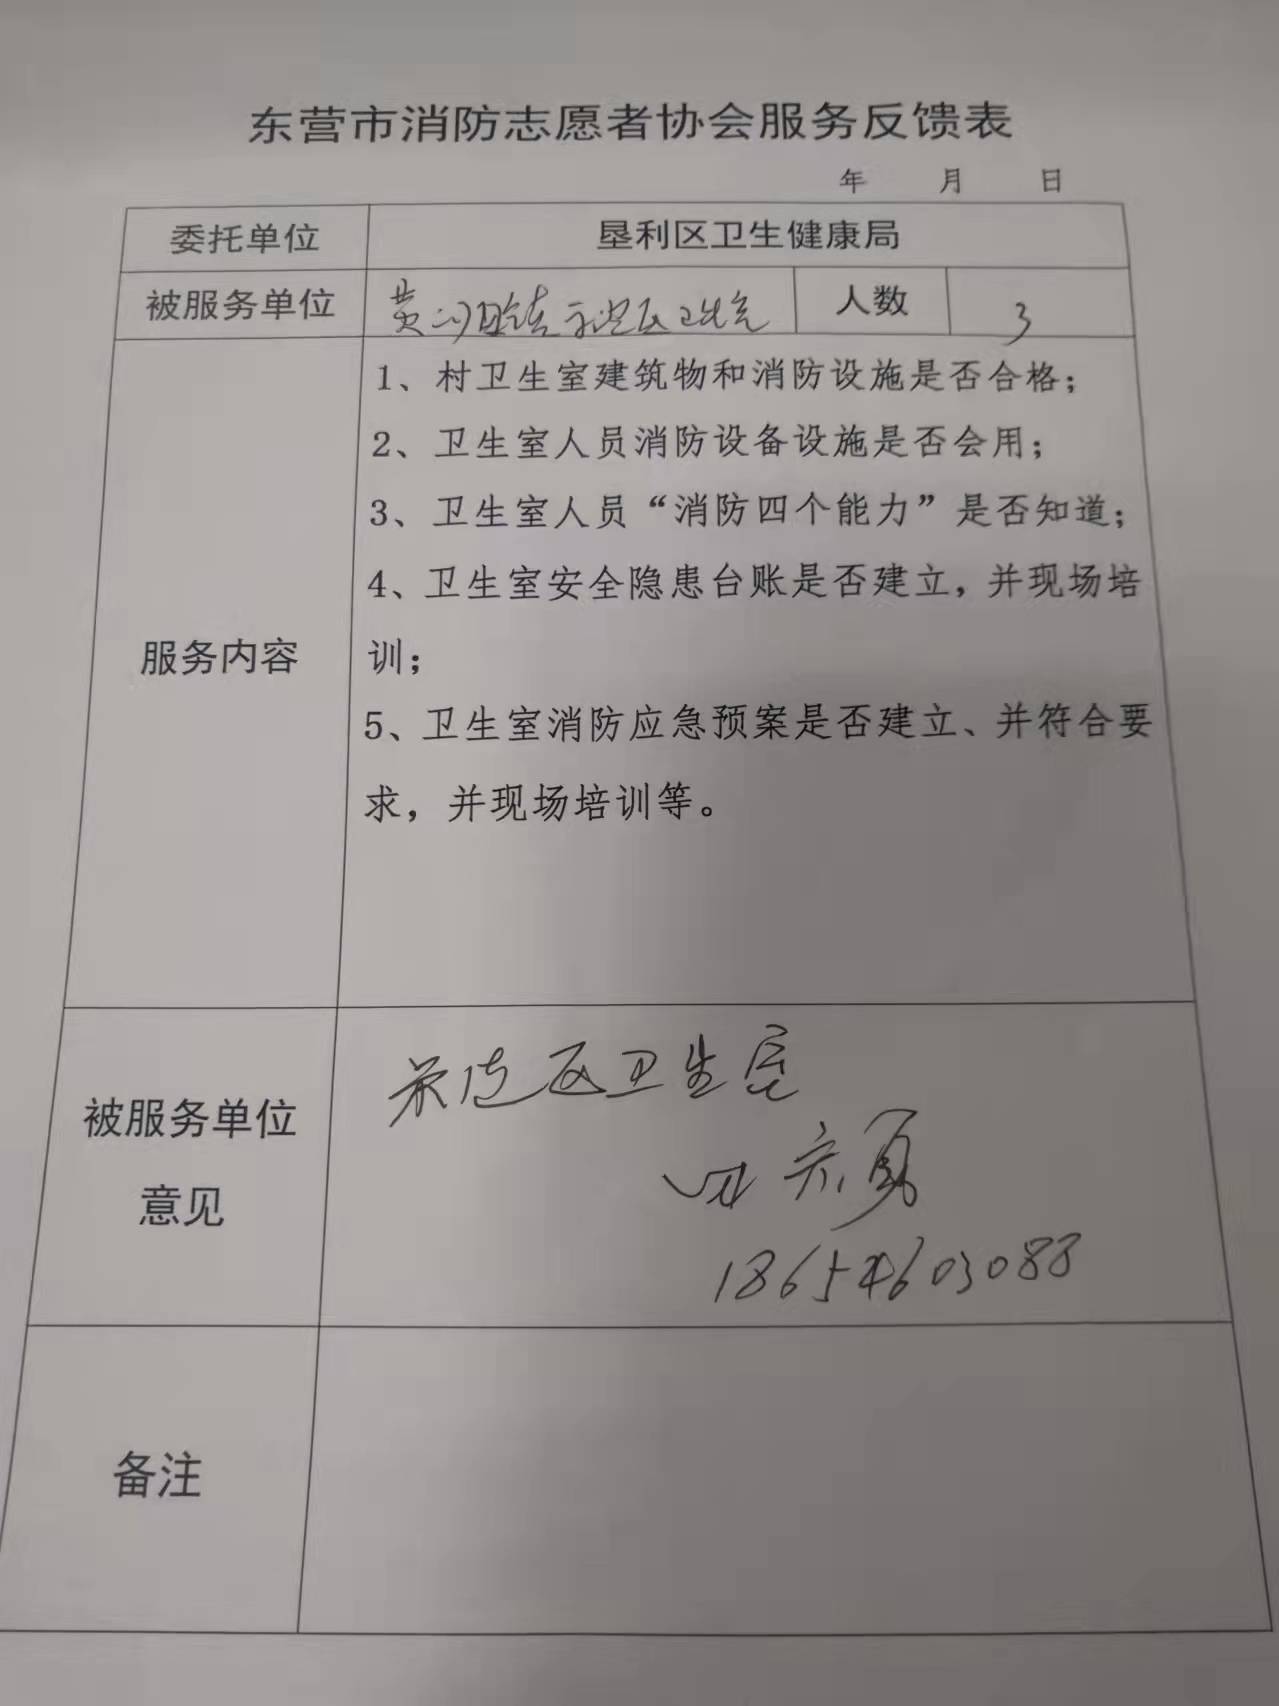 东营市消防志愿者协会服务反馈表
年 月 日
委托单位 垦利区卫生健康局
被服务单位 黄河口镇 人数 3
服务内容
1、村卫生室建筑物和消防设施是否合格；
2、卫生室人员消防设备设施是否会用；
3、卫生室人员“消防四个能力”是否知道；
4、卫生室安全隐患台账是否建立，并现场培
训；
5、卫生室消防应急预案是否建立、并符合要
求，并现场培训等。
被服务单位
意见
区卫生室
18654603088
备注